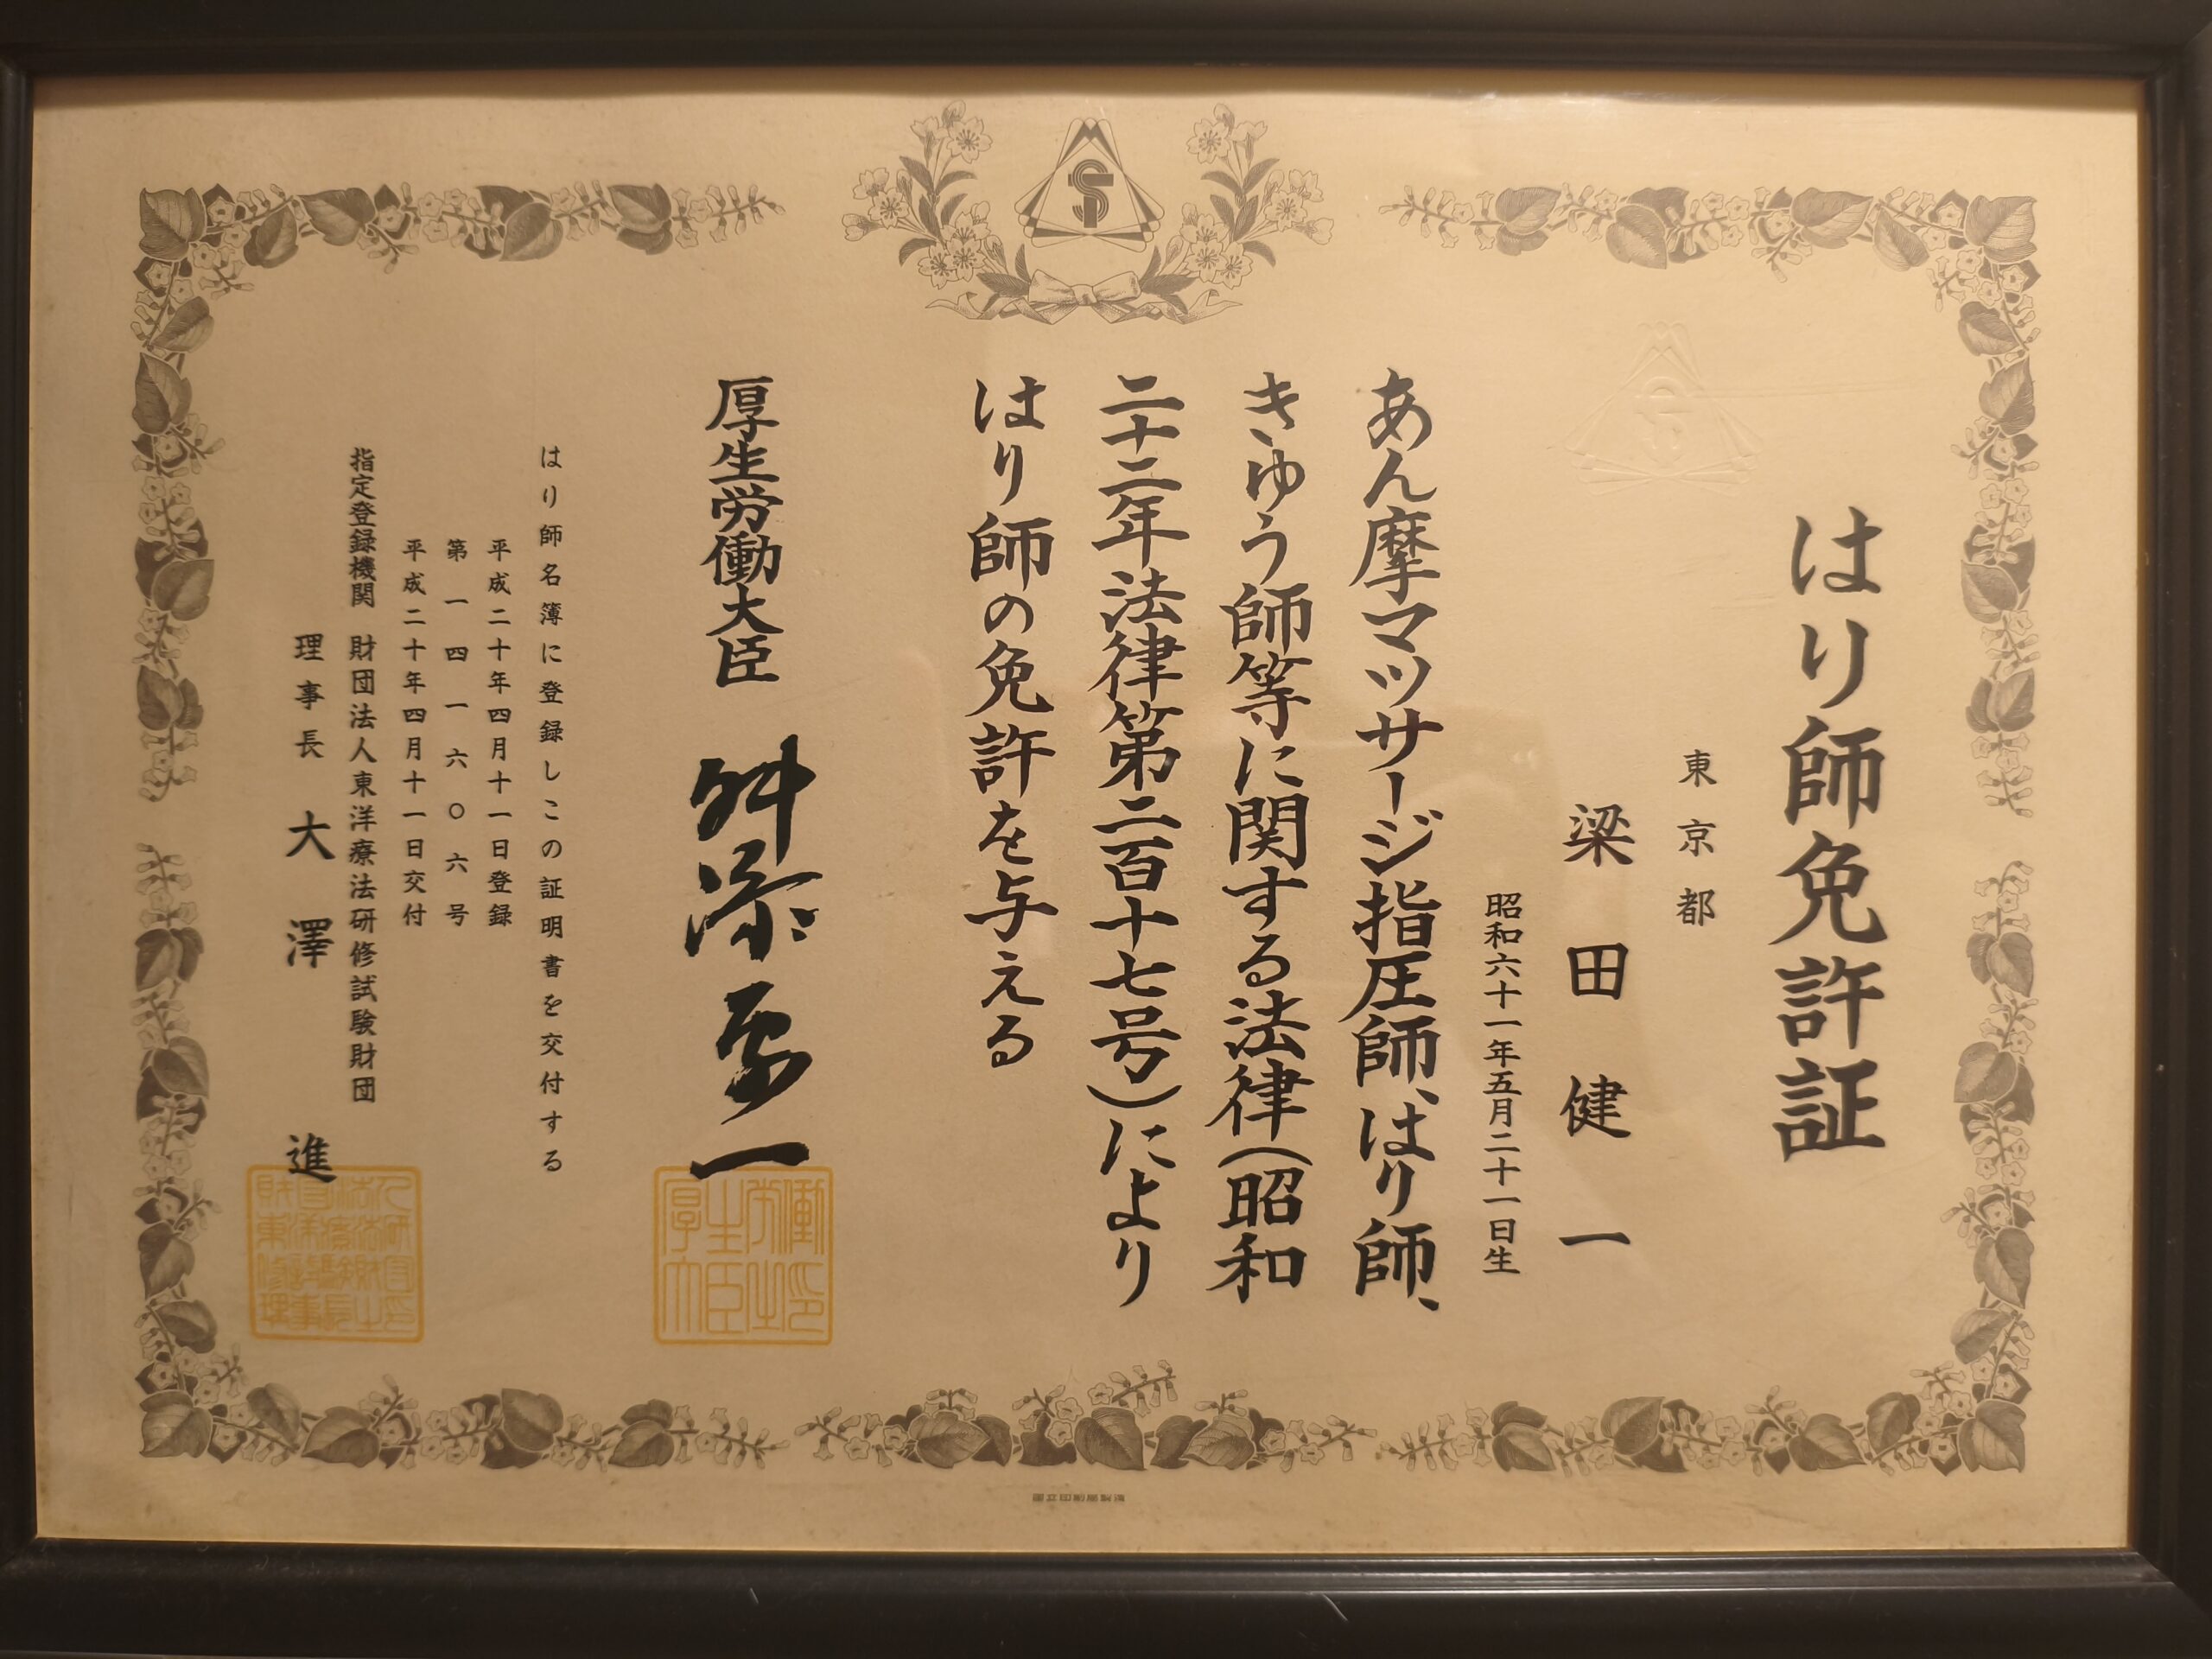 はり師免許証
東京都
梁田健一
昭和六十一年五月二十一日生
あん摩マツサージ指圧師、はり師、
きゆう師等に関する法律(昭和
二十二年法律第二百十七号)により
はり師の免許を与える
厚生労働大臣 舛添要一
はり師名簿に登録しこの証明書を交付する
平成二十年四月十一日登録
第一四一六〇六号
平成二十年四月十一日交付
指定登録機関 財団法人東洋療法研修試験財団
理事長 大澤進